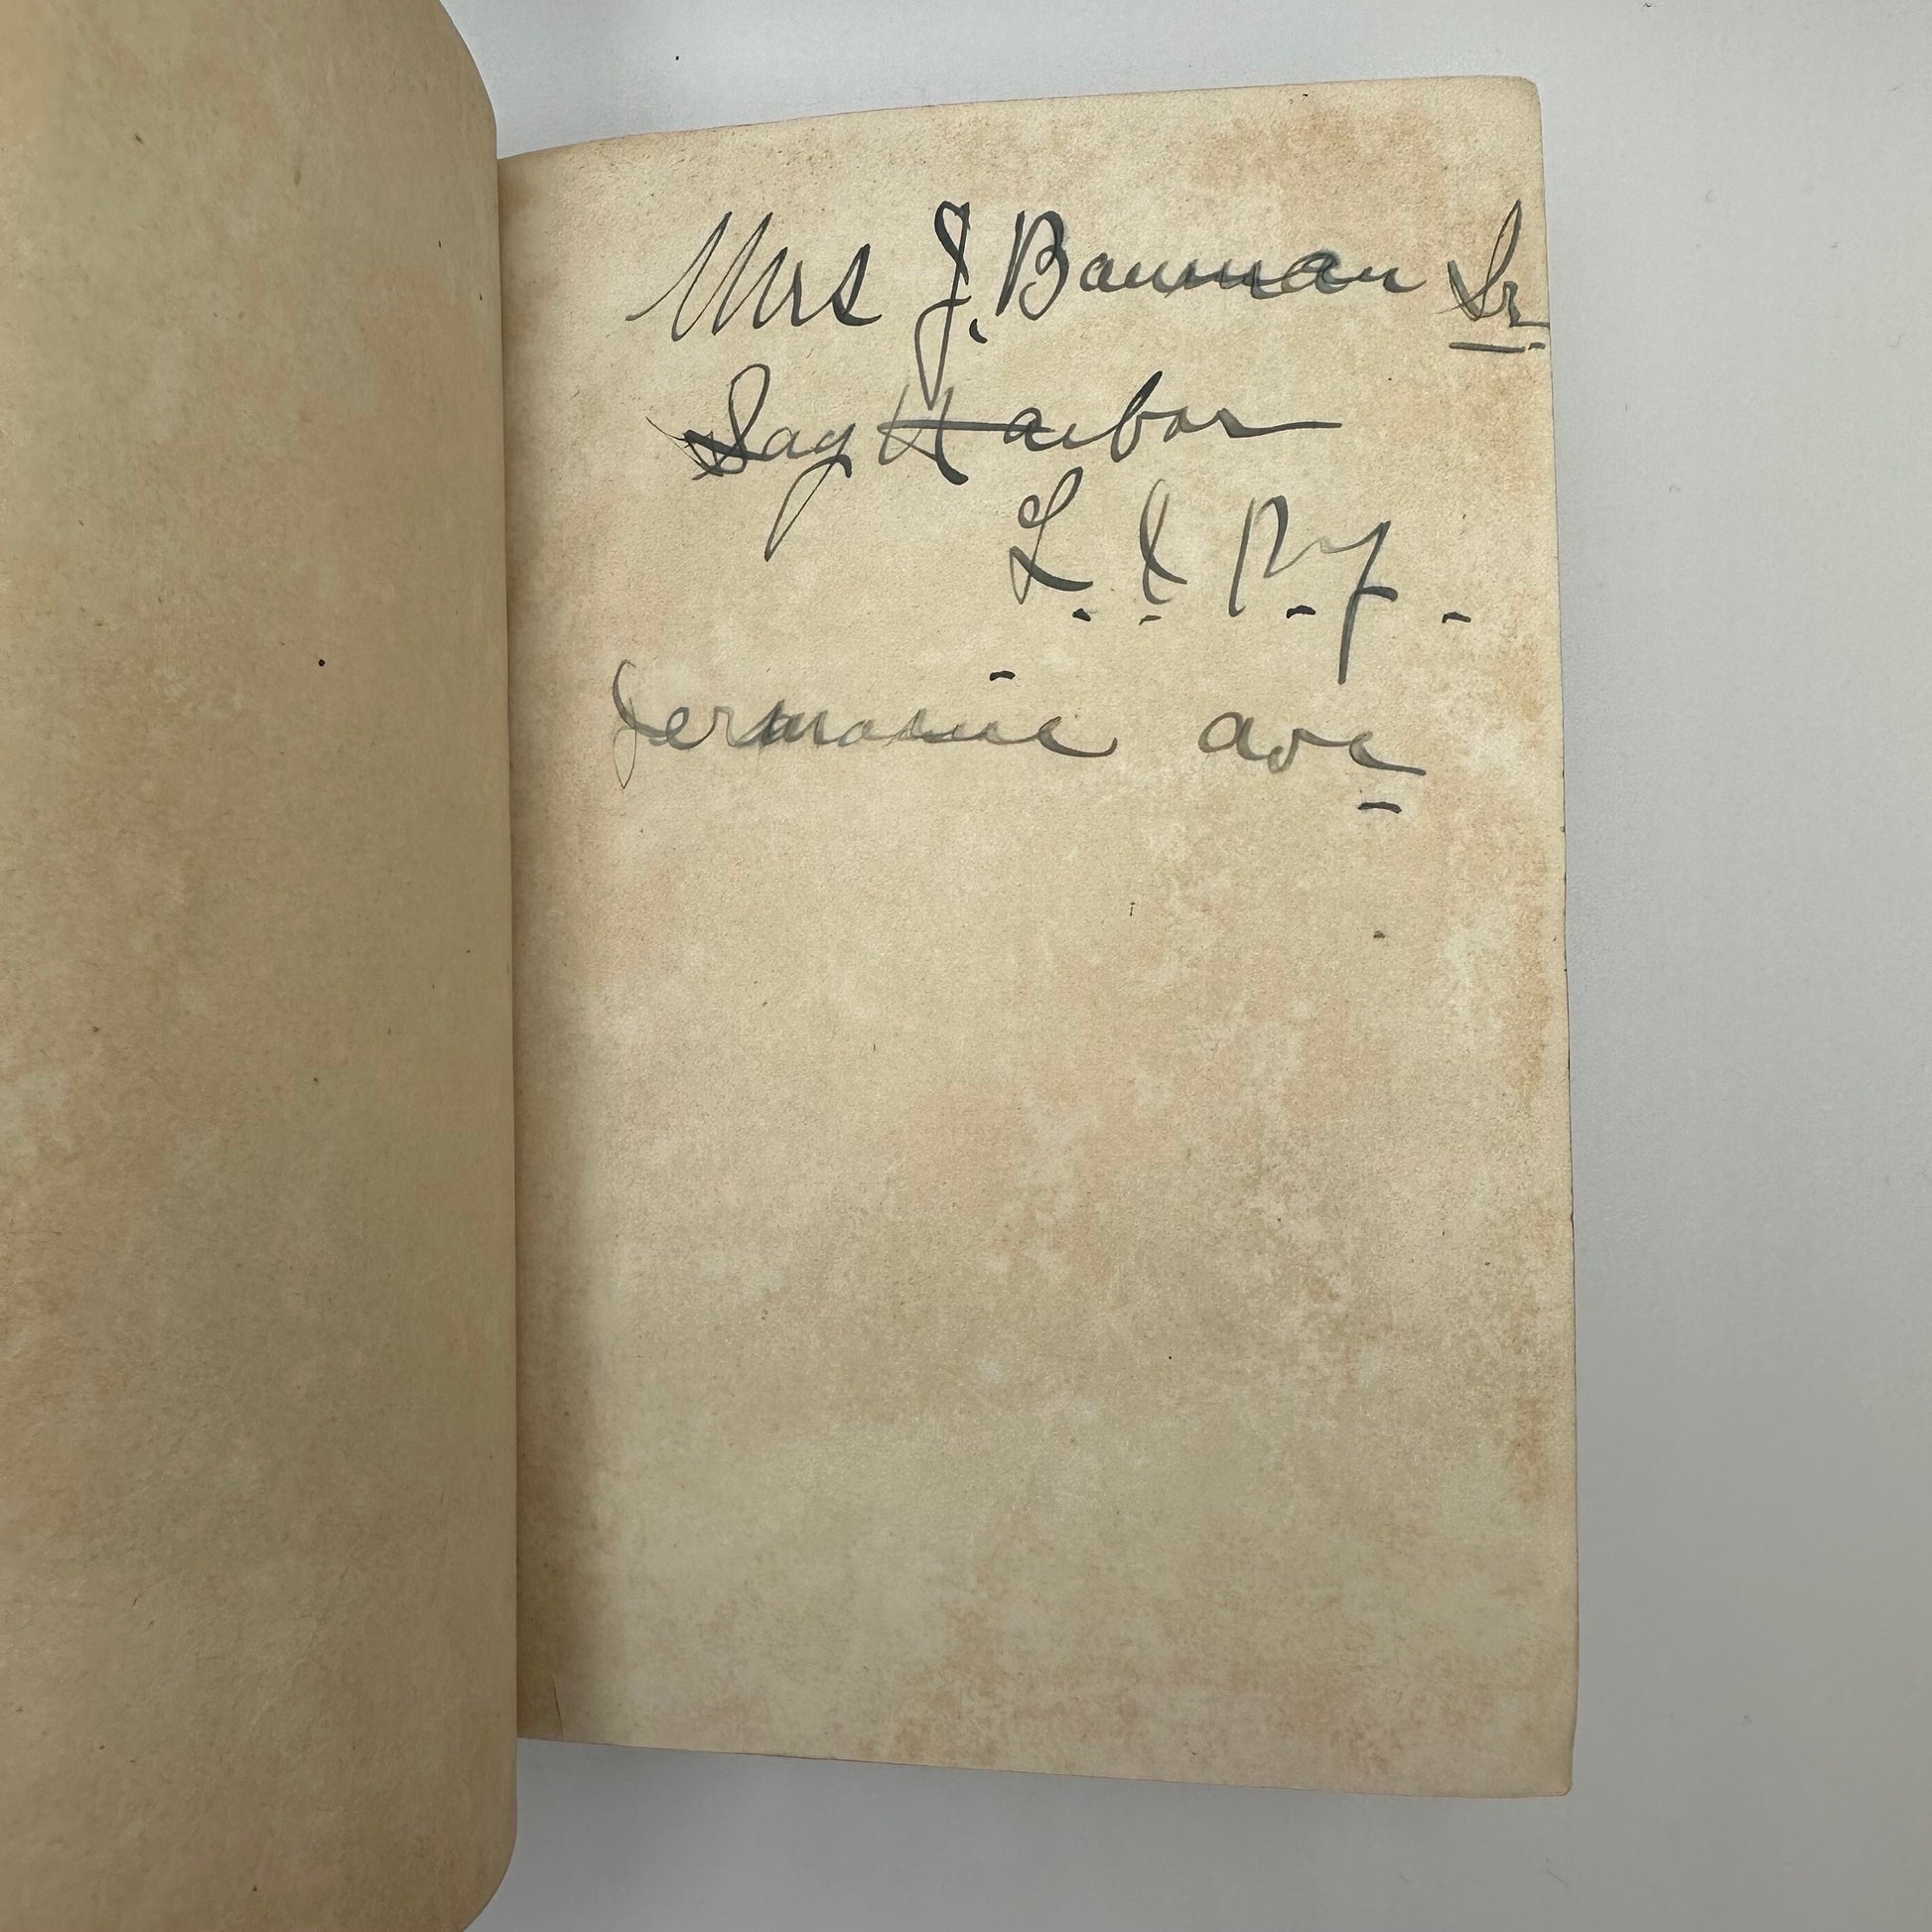 Mrs J. Bauman Sr.
Sag Harbor
L. I. N. Y.
Jermaine ave